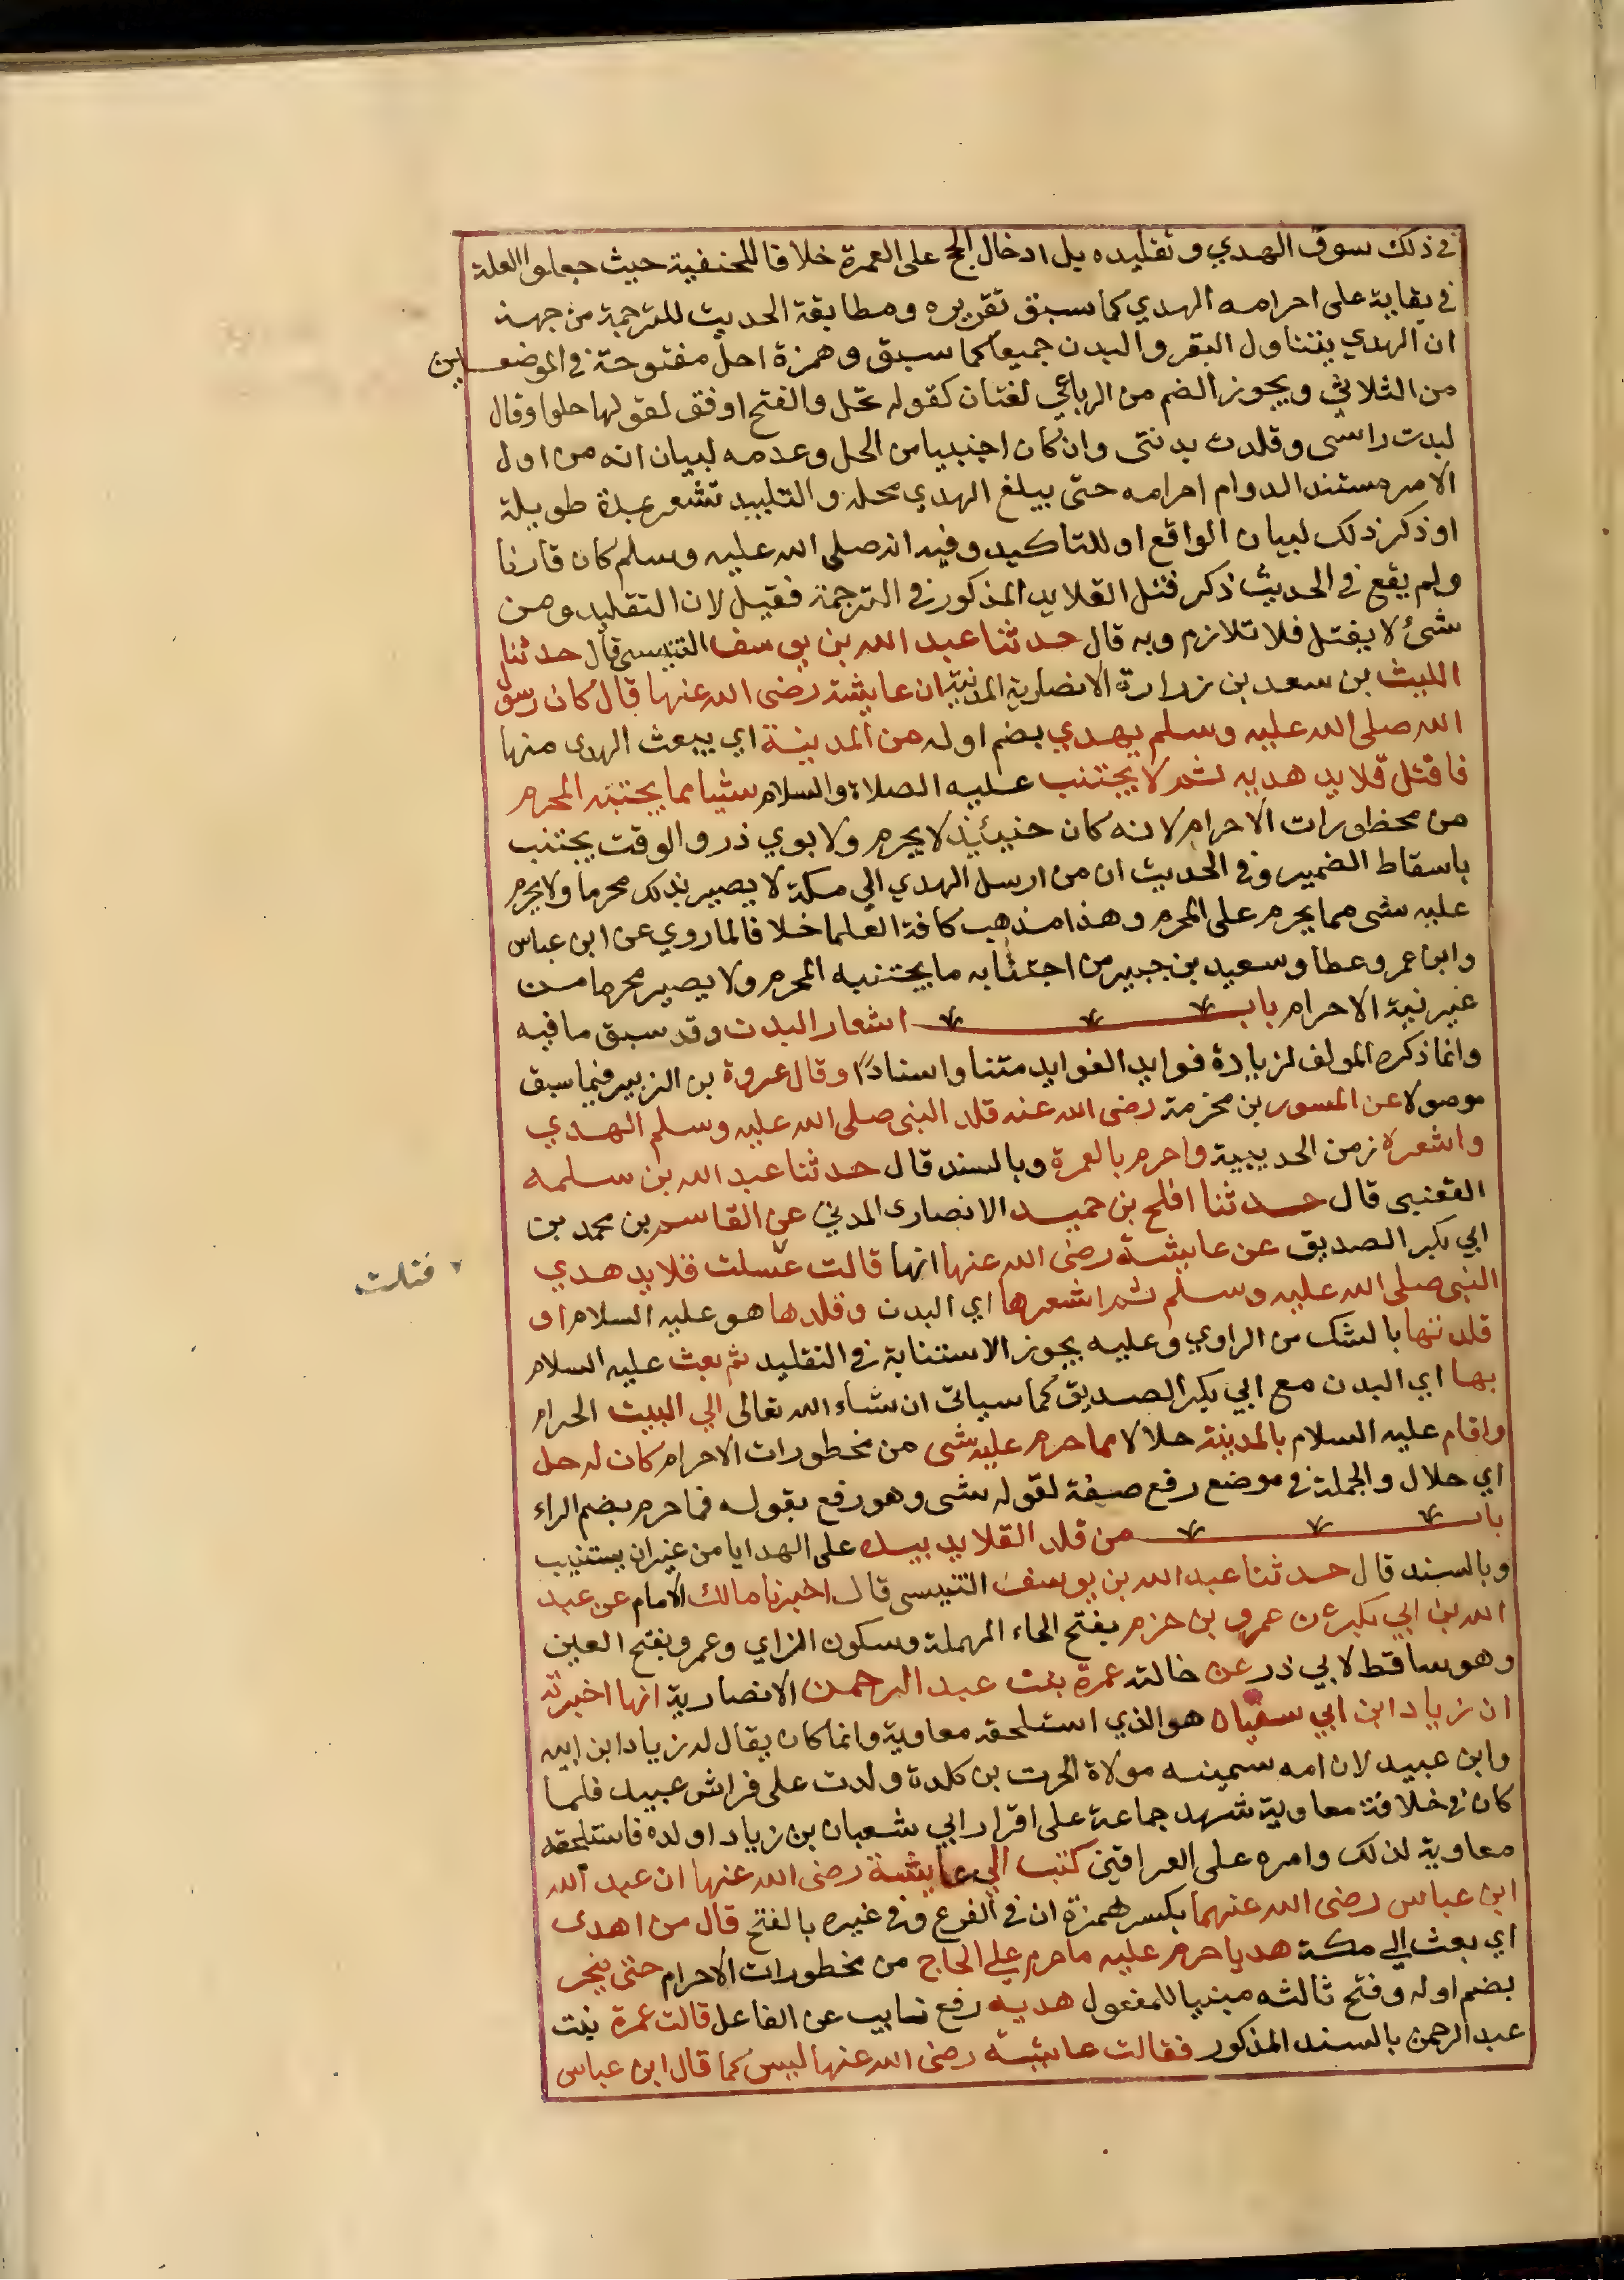 في ذلك سوق الهدي وتقليده بل ادخال الحج على العمرة خلافا للحنفية حيث جعلوا العلة
في بقاية على احرامه الهدي كما سبق تقريره ومطابقة الحديث للترجمة من جهة
ان الهدي يتناول البقر والبدن جميعا كما سبق وهمزة احل مفتوحة في الموضعين
من الثلاثي ويجوز الضم من الرباعي لغتان كقوله تحل والفتح اوفق لقولها حلوا وقال
لبدت راسي وقلدت بدنتي وان كان اجنبيا من الحل وعدمه لبيان انه من اول
الامر مستند الدوام احرامه حتى يبلغ الهدي محله والتلبيد تشعر بمدة طويلة
او ذكر ذلك لبيان الواقع او للتاكيد وفيه انه صلى الله عليه وسلم كان قارنا
ولم يقع في الحديث ذكر فتل القلايد المذكور في الترجمة فقيل لان التقليد من
شئ لا يفتل فلا تلازم وبه قال حدثنا عبد الله بن يوسف التنيسي قال حدثنا
الليث بن سعد بن زرارة الانصارية المدنية ان عايشة رضي الله عنها قال كان رسول
الله صلى الله عليه وسلم يهدي بضم اوله من المدينة اي يبعث الهدى منها
فافتل قلايد هديه ثم لا يجتنب عليه الصلاة والسلام شيا مما يجتنبه المحرم
من محظورات الاحرام لانه كان حينئذ لا يحرم ولابوي ذر والوقت يجتنب
باسقاط الضمير وفي الحديث ان من ارسل الهدي الي مكة لا يصير بذلك محرما ولا يحرم
عليه شى مما يحرم على المحرم وهذا مذهب كافة العلما خلافا لما روي عن ابن عباس
وابن عمر وعطا وسعيد بن جبير من اجتنابه ما يجتنبه المحرم ولا يصير محرما من
غير نية الاحرام باب اشعار البدن وقد سبق ما فيه
وانما ذكره المولف لزيادة فوايد الفوايد متنا واسنادا وقال عروة بن الزبير فيما سبق
موصولا عن المسور بن مخزمة رضي الله عنه قلد النبي صلى الله عليه وسلم الهدي
واشعره زمن الحديبية واحرم بالعمرة وبالسند قال حدثنا عبد الله بن سلمه
القعنبي قال حدثنا افلح بن حميد الانصارى المدني عن القاسم بن محمد بن
ابي بكر الصديق عن عايشة رضي الله عنها انها قالت غسلت قلايد هدي
فتلت
النبي صلى الله عليه وسلم ثم اشعرها اي البدن وقلدها هو عليه السلام او
قلدتها بالشك من الراوي وعليه يجوز الاستنابة في التقليد ثم بعث عليه السلام
بها اي البدن مع ابي بكر الصديق كما سياتى ان شاء الله تعالى الي البيت الحرام
واقام عليه السلام بالمدينة حلالا مما حرم عليه شى من محظورات الاحرام كان له حل
اي حلال والجملة في موضع رفع صفة لقوله شى وهو رفع بقوله فما حرم بضم الراء
باب من قلد القلايد بيده على الهدايا من غير ان يستنيب
وبالسند قال حدثنا عبد الله بن يوسف التنيسي قال اخبرنا مالك الامام عن عبد
الله بن ابي بكر عن عمرو بن حزم بفتح الحاء المهملة وسكون الزاي وعمرو بفتح العين
وهو ساقط لابي ذر عن خالته عمرة بنت عبد الرحمن الانصارية انها اخبرته
ان زياد ابن ابي سفيان هو الذي استلحقه معاوية وانما كان يقال له زياد ابن ابيه
وابن عبيد لان امه سمينه مولاة الحرث بن كلدة ولدت على فراش عبيد فلما
كان في خلافة معاوية شهد جماعة على اقرار ابي شعبان بن زياد او لده فاستلحقه
معاوية لذلك وامره على العراقين كتب الي عايشة رضي الله عنها ان عبد الله
ابن عباس رضي الله عنهما بكسر همزة ان في الفرع وفي غيره بالفتح قال من اهدى
اي بعث الي مكة هديا حرم عليه ما حرم علي الحاج من محظورات الاحرام حتى ينحر
بضم اوله وفتح ثالثه مبنيا للمفعول هديه رفع نايب عن الفاعل قالت عمرة بنت
عبد الرحمن بالسند المذكور فقالت عايشة رضي الله عنها ليس كما قال ابن عباس